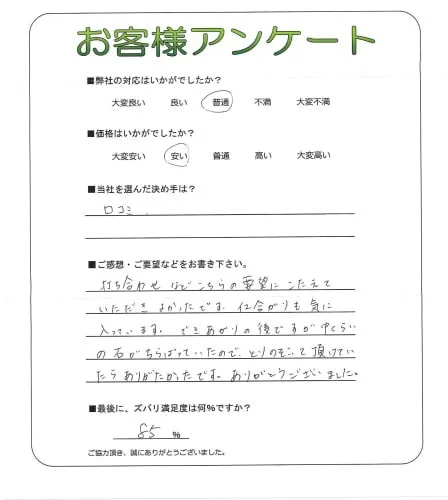 お客様アンケート
■弊社の対応はいかがでしたか？
大変良い 良い 普通 不満 大変不満
■価格はいかがでしたか？
大変安い 安い 普通 高い 大変高い
■当社を選んだ決め手は？
口コミ．
■ご感想・ご要望などをお書き下さい。
打ち合わせなどこちらの要望にこたえて
いただきよかったです。仕合がりも気に
入っています。できあがりの後ですが中くらい
の石がちらばっていたので、とりのぞいて頂けてい
たらありがたかったです。ありがとうございました。
■最後に、ズバリ満足度は何%ですか？
85 %
ご協力頂き、誠にありがとうございました。